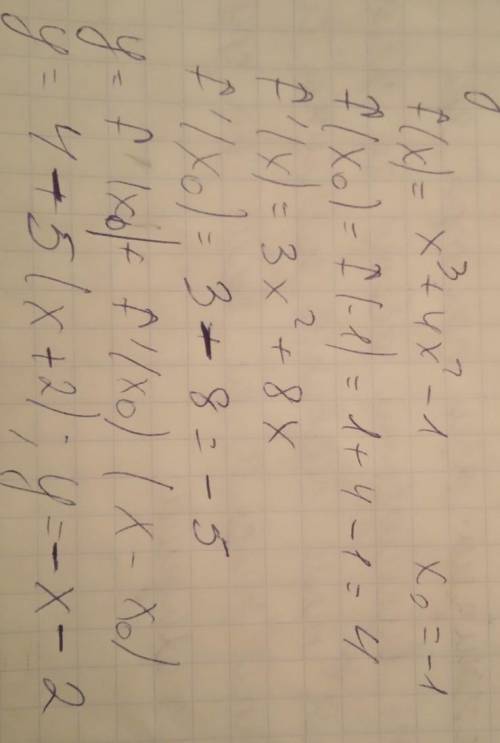 f(x) = x³ + 4x² - 1 x₀ = -1
f(x₀) = f(-1) = 1 + 4 - 1 = 4
f'(x) = 3x² + 8x
f'(x₀) = 3 - 8 = - 5
y = f'(x₀) + f'(x₀) (x - x₀)
y = 4 - 5 (x + 2); y = - x - 2